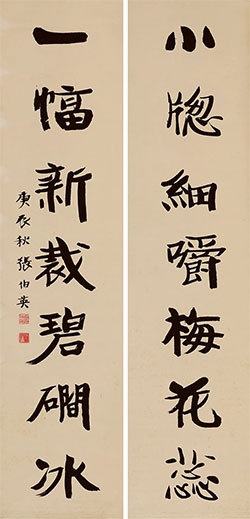 小牕細嚼梅花蕊
一幅新裁碧磵冰
庚辰秋張伯英